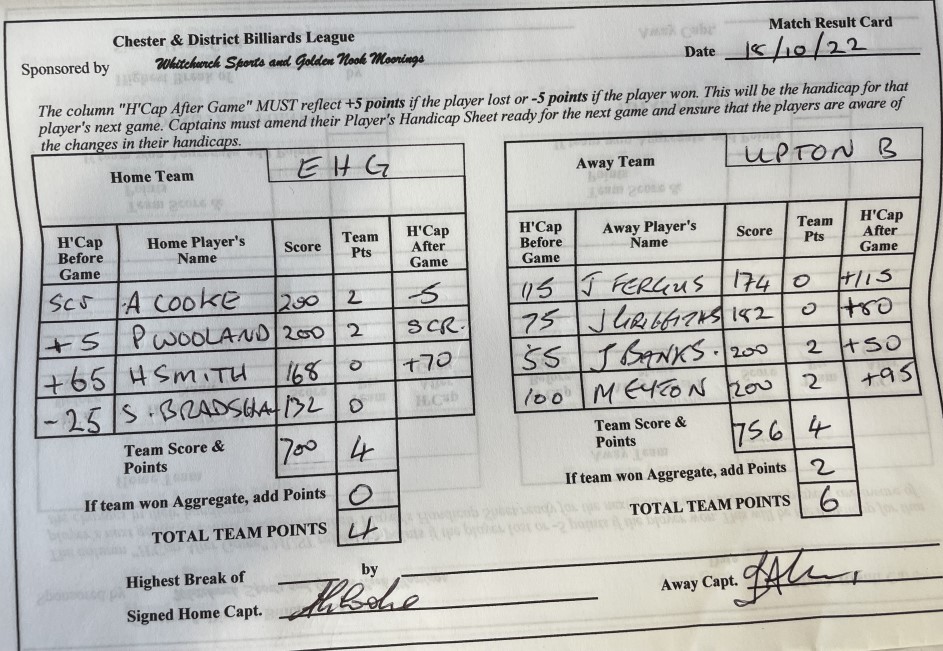 Chester & District Billiards League
Match Result Card
Sponsored by Whitchurch Sports and Golden Nook Moorings
Date 18/10/22
The column "H'Cap After Game" MUST reflect +5 points if the player lost or -5 points if the player won. This will be the handicap for that
player's next game. Captains must amend their Player's Handicap Sheet ready for the next game and ensure that the players are aware of
the changes in their handicaps.
Home Team EHG
H'Cap Before Game Home Player's Name Score Team Pts H'Cap After Game
Scr A COOKE 200 2 -5
+5 P WOOLAND 200 2 SCR.
+65 H SMITH 168 0 +70
-25 S.BRADSHA 132 0
Team Score & Points 700 4
If team won Aggregate, add Points 0
TOTAL TEAM POINTS 4
Away Team UPTON B
H'Cap Before Game Away Player's Name Score Team Pts H'Cap After Game
115 J FERGUS 174 0 +115
75 J GRIFFITHS 182 0 +80
55 J BANKS. 200 2 +50
100 M EYTON 200 2 +95
Team Score & Points 756 4
If team won Aggregate, add Points 2
TOTAL TEAM POINTS 6
Highest Break of by
Signed Home Capt.
Away Capt.